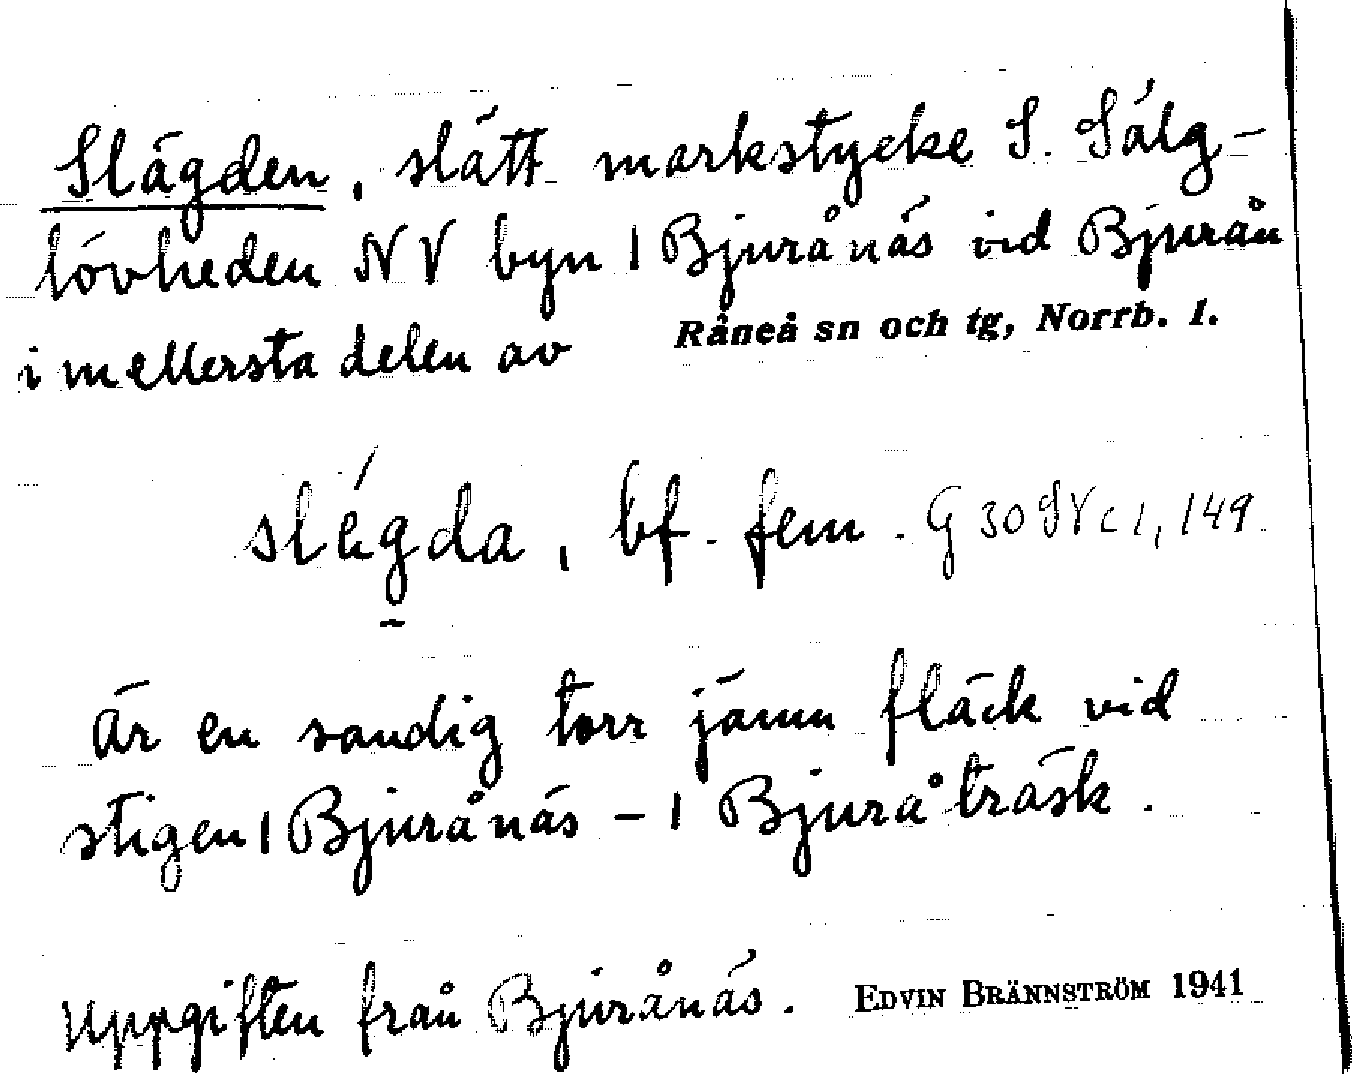 Slägden, slätt markstycke S. Sälg-
lövheden NV byn 1 Bjurånäs vid Bjurån
i mellersta delen av Råneå sn och tg, Norrb. l.
slégda, bf. fem. G 30 SV c 1, 149.
Är en sandig torr jämn fläck vid
stigen 1 Bjurånäs – 1 Bjuråträsk.
Uppgiften från Bjurånäs. EDVIN BRÄNNSTRÖM 1941